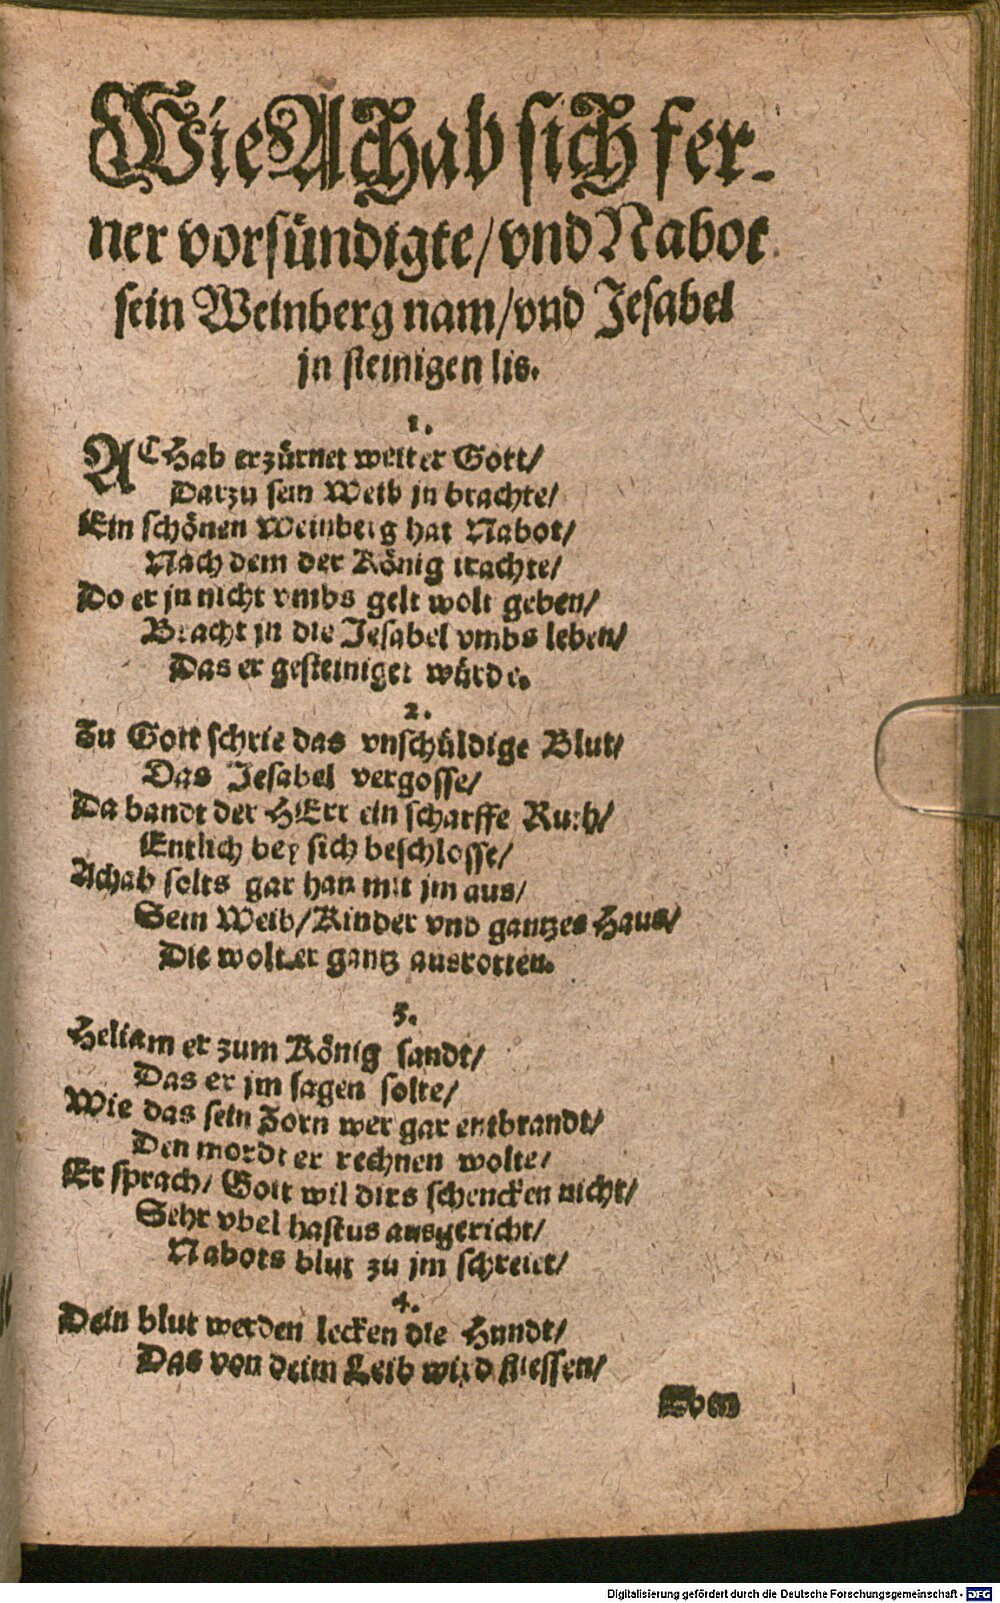 Wie Achab sich fer-
ner vorsündigte/ vnd Nabot
sein Weinberg nam/ vnd Jesabel
jn steinigen lis.
1.
AChab erzürnet weiter Gott/
Darzu sein Weib jn brachte/
Ein schönen Weinberg hat Nabot/
Nach dem der König trachte/
Do er jn nicht vmbs gelt wolt geben/
Bracht jn die Jesabel vmbs leben/
Das er gesteiniget würde.
2.
Zu Gott schrie das vnschüldige Blut/
Das Jesabel vergosse/
Da bandt der HErr ein scharffe Ruth/
Entlich bey sich beschlosse/
Achab solts gar han mit jm aus/
Sein Weib/ Kinder vnd gantzes Haus/
Die wolt er gantz ausrotten.
3.
Heliam er zum König sandt/
Das er jm sagen solte/
Wie das sein Zorn wer gar entbrandt/
Den mordt er rechnen wolte/
Er sprach/ Gott wil dirs schencken nicht/
Sehr vbel hastus ausgericht/
Nabots blut zu jm schreiet/
4.
Dein blut werden lecken die Hundt/
Das von deim Leib wird fliessen/
Eben
Digitalisierung gefördert durch die Deutsche Forschungsgemeinschaft - DFG